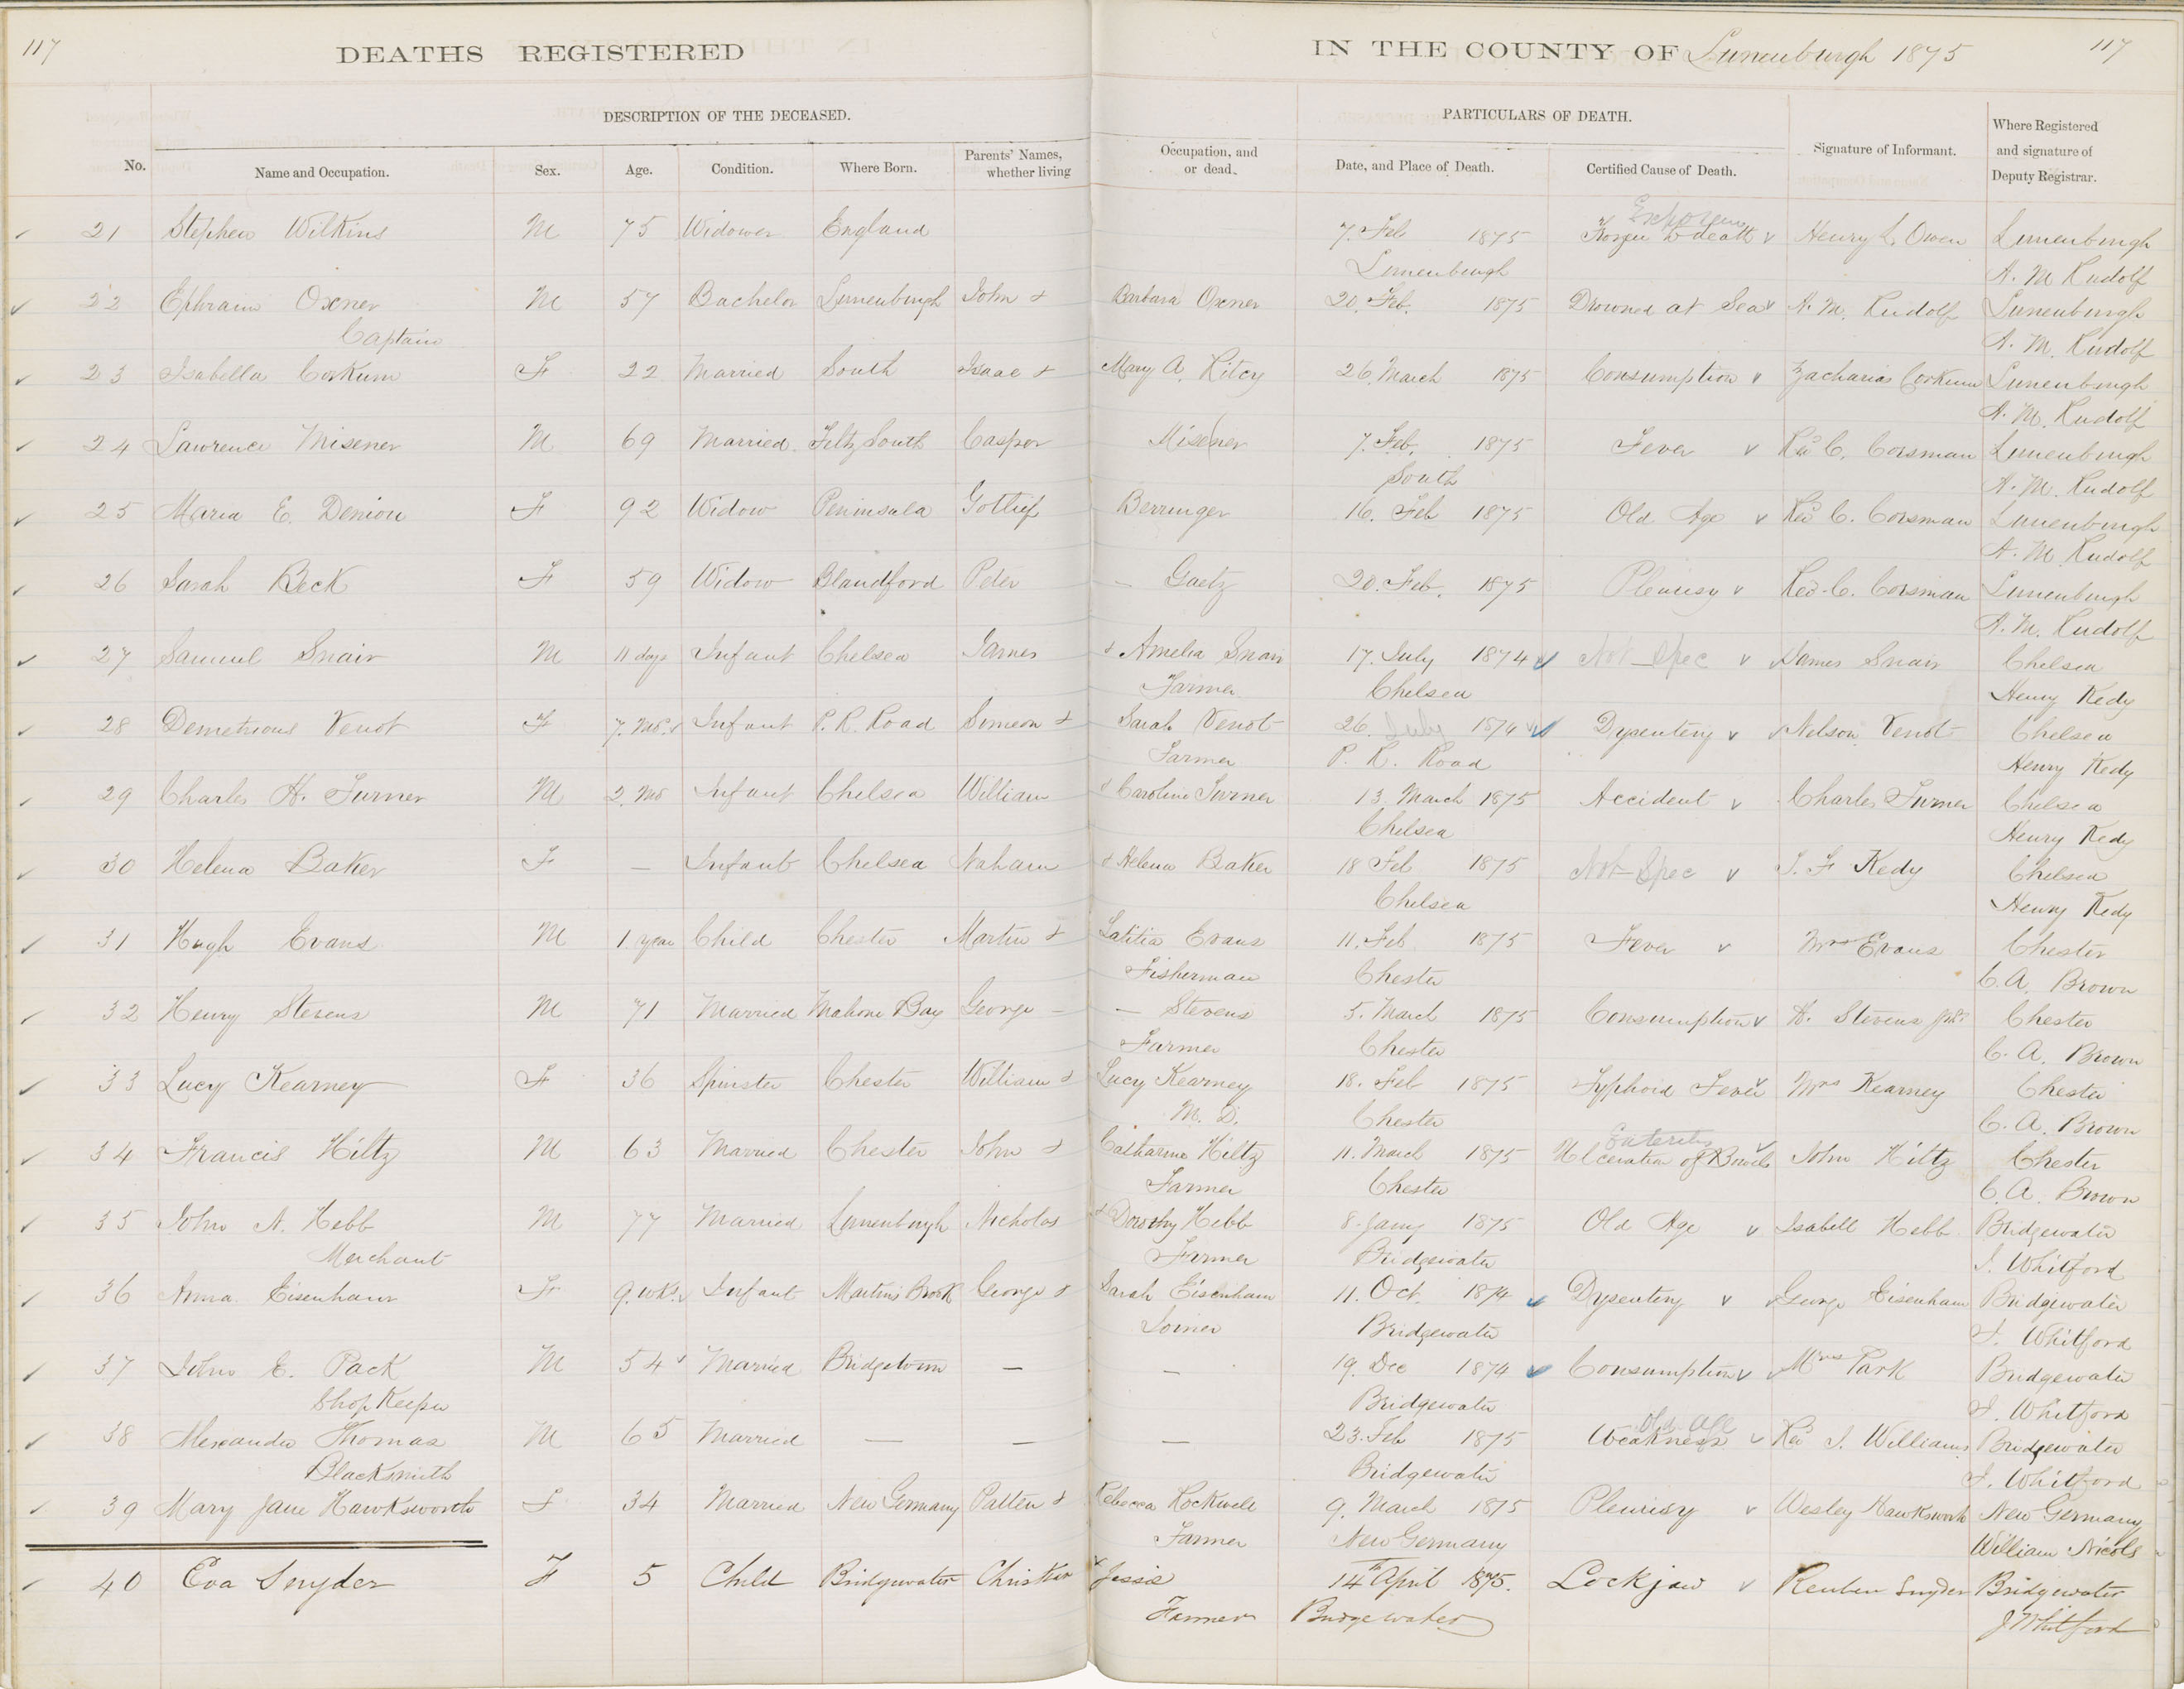 117
DEATHS REGISTERED
IN THE COUNTY OF Lunenburgh 1875
117
DESCRIPTION OF THE DECEASED.
PARTICULARS OF DEATH.
No. Name and Occupation. Sex. Age. Condition. Where Born. Parents' Names, whether living Occupation, and or dead. Date, and Place of Death. Certified Cause of Death. Signature of Informant. Where Registered and signature of Deputy Registrar.
Exposure
21 Stephen Wilkins M 75 Widower England 7. Feb 1875 Frozen to death Henry L. Owen Lunenburgh
Lunenburgh A. M. Rudolf
22 Ephraim Oxner M 57 Bachelor Lunenburgh John & Barbara Oxner 20. Feb. 1875 Drowned at Sea A. M. Rudolf Lunenburgh
Captain A. M. Rudolf
23 Isabella Corkum F 22 Married South Isaac & Mary A. Ritcy 26. March 1875 Consumption Zacharias Corkum Lunenburgh
A. M. Rudolf
24 Lawrence Misener M 69 Married Feltz South Casper Misener 7. Feb. 1875 Fever Rev C. Cossman Lunenburgh
South A. M. Rudolf
25 Maria E. F 92 Widow Peninsula Gotlief Berringer 16. Feb 1875 Old Age Rev C. Cossman Lunenburgh
A. M. Rudolf
26 Sarah Beck F 59 Widow Blandford Peter — Gaetz 20. Feb. 1875 Pleurisy Rev. C. Cossman Lunenburgh
A. M. Rudolf
27 Samuel Snair M 11 days Infant Chelsea James & Amelia Snair 17. July 1874 Not Spec James Snair Chelsea
Farmer Chelsea Henry Kedy
28 Venot F 7. Mos. Infant P. R. Road Simeon & Sarah Venot 26. July 1874 Dysentery Nelson Venot Chelsea
Farmer P. R. Road Henry Kedy
29 Charles H. Turner M 2. Mo Infant Chelsea William & Caroline Turner 13. March 1875 Accident Charles Turner Chelsea
Chelsea Henry Kedy
30 Helena Baker F — Infant Chelsea Naham & Helena Baker 18 Feb 1875 Not Spec F Kedy Chelsea
Chelsea Henry Kedy
31 Hugh Evans M 1 year Child Chester Martin & Latitia Evans 11. Feb 1875 Fever Mrs Evans Chester
Fisherman Chester C. A. Brown
32 Henry Stevens M 71 Married Mahone Bay George — — Stevens 5. March 1875 Consumption H. Stevens Chester
Farmer Chester C. A. Brown
33 Lucy Kearney F 36 Spinster Chester William & Lucy Kearney 18. Feb 1875 Typhoid Fever Mrs Kearney Chester
M. D. Chester C. A. Brown
Enteritis
34 Francis Hiltz M 63 Married Chester John & Catharine Hiltz 11. March 1875 Ulceration of Bowels John Hiltz Chester
Farmer Chester C. A. Brown
35 John N. Hebb M 77 Married Lunenburgh Nicholas & Dorothy Hebb 8. Jany 1875 Old Age Isabell Hebb Bridgewater
Merchant Farmer Bridgewater J. Whitford
36 Anna Eisenhaur F 9. wks. Infant Martins Brook George & Sarah Eisenhaur 11. Oct. 1874 Dysentery George Eisenhaur Bridgewater
Joiner Bridgewater J. Whitford
37 John E. Pack M 54 Married Bridgetown — — 19. Dec 1874 Consumption Mrs Park Bridgewater
Shop Keeper Bridgewater J. Whitford
Old Age
38 Alexander Thomas M 65 Married — — — 23. Feb 1875 Weakness Rev J. Williams Bridgewater
Blacksmith Bridgewater J. Whitford
39 Mary Jane Hawksworth F 34 Married New Germany Patten & Rebecca Rockwell 9. March 1875 Pleurisy Wesley Hawksworth New Germany
Farmer New Germany William Nicols
40 Eva Snyder F 5 Child Bridgewater Christian & Jessie 14th April 1875. Lockjaw Reuben Snyder Bridgewater
Farmer Bridgewater J Whitford